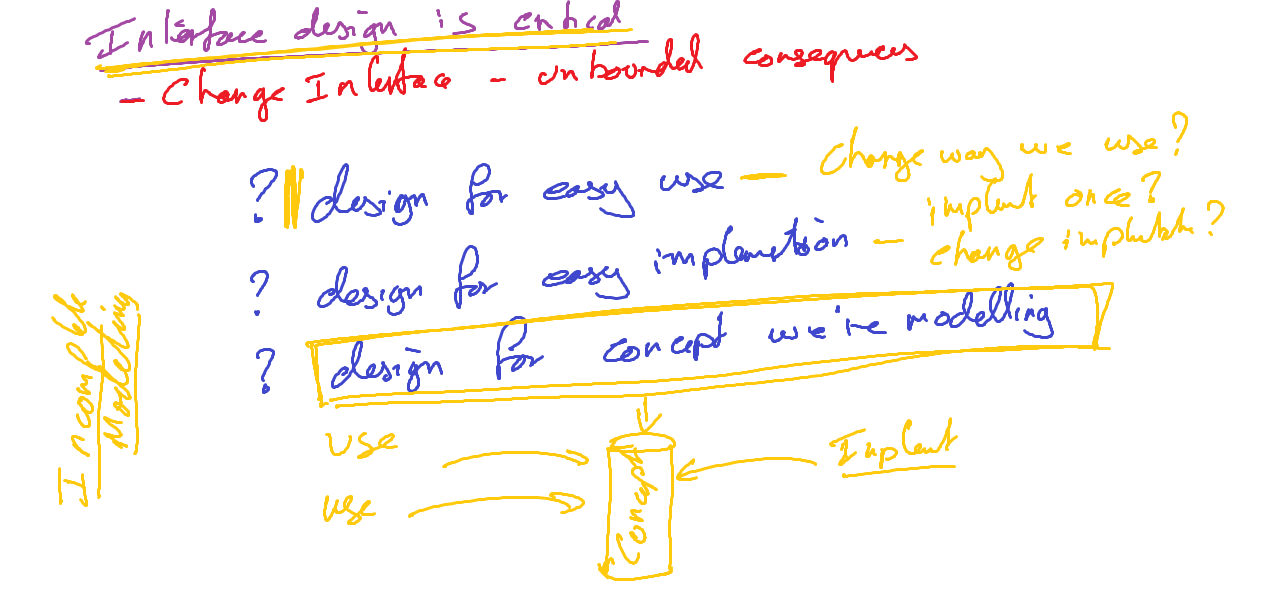 Interface design is critical
- Change Interface - unbounded consequences
? design for easy use - Change way we use?
implemt once?
? design for easy implemetation - change implemtatn?
? design for concept we're modelling
Incomplete
Modelling
use
use
Concept
Implemt